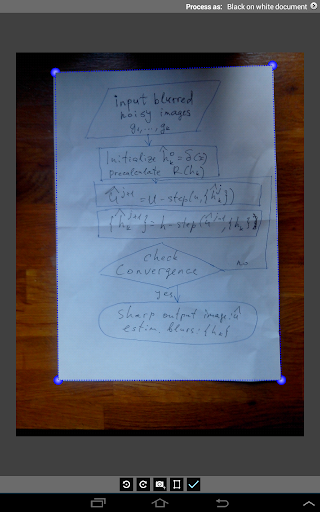 Process as: Black on white document
input blurred
noisy images
Initialize
precalculate R(h_k)
û^{j+1} = u - step(
h - step(
check
Convergence
No
yes
Sharp output image: û
estim. blurs: {h_k}